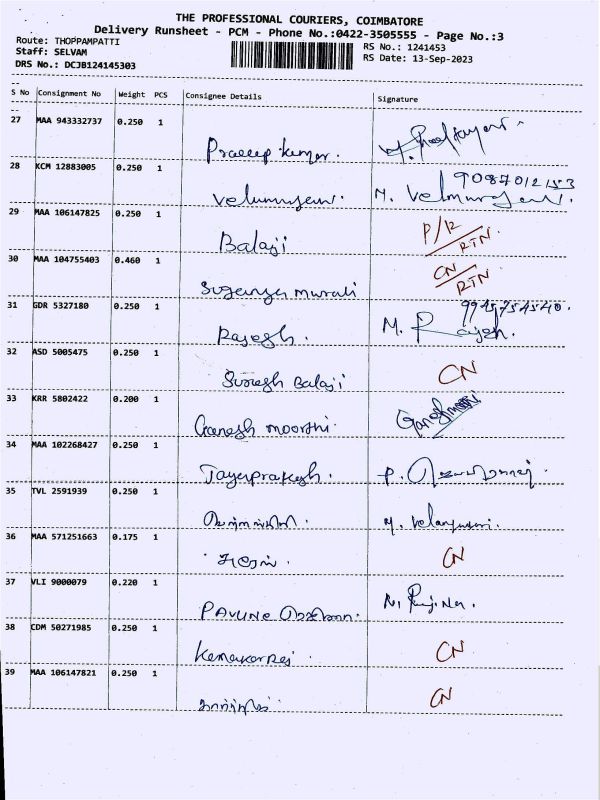 THE PROFESSIONAL COURIERS, COIMBATORE
Delivery Runsheet - PCM - Phone No.:0422-3505555 - Page No.:3
Route: THOPPAMPATTI
RS No.: 1241453
Staff: SELVAM
RS Date: 13-Sep-2023
DRS No.: DCJB124145303
S No Consignment No Weight PCS Consignee Details Signature
27 MAA 943332737 0.250 1
Pradeep Kumar.
28 KCM 12883005 0.250 1
9087012153
Velumurugan M. Velmurugan.
29 MAA 106147825 0.250 1
Balaji P/R RTN
30 MAA 104755403 0.460 1
Suganya murali CN RTN
31 GDR 5327180 0.250 1
9945754540.
Rajesh. M. Rajesh.
32 ASD 5005475 0.250 1
Suresh Balaji CN
33 KRR 5802422 0.200 1
Ganesh moorthi. Ganeshmoorthi
34 MAA 102268427 0.250 1
Jayaprakash. P.
35 TVL 2591939 0.250 1
M.
36 MAA 571251663 0.175 1
CN
37 VLI 9000079 0.220 1
38 CDM 50271985 0.250 1
Kamakarraj CN
39 MAA 106147821 0.250 1
CN